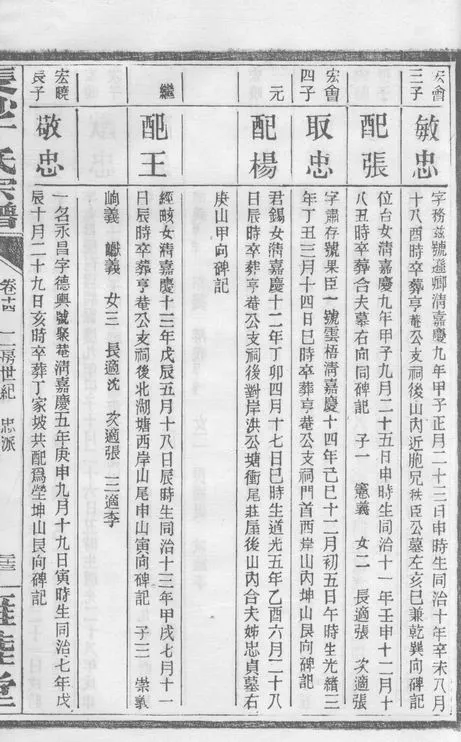 宏會
三子
敏忠
字務玆號遜卿清嘉慶九年甲子正月二十三日申時生同治十年辛未八月
十八酉時卒葬亨菴公支祠後山內近胞兄秩臣公墓左亥巳兼乾巽向碑記
配張
位台女清嘉慶九年甲子九月二十五日申時生同治十一年壬申十二月十
八丑時卒葬合夫墓右向同碑記 子一 憲義 女二 長適張 次適張
宏會
四子
取忠
字肅存號果臣一號雲梧清嘉慶十四年己巳十二月初五日午時生光緒三
年丁丑三月十四日巳時卒葬亨菴公支祠門首西岸山內坤山艮向碑記
元
配楊
君錫女清嘉慶十二年丁卯四月十七日巳時生道光五年乙酉六月二十八
日辰時卒葬亨菴公支祠後對岸洪公塘衝尾莊屋後山內合夫姊忠貞墓右
庚山甲向碑記
繼
配王
經畯女清嘉慶十三年戊辰五月十八日辰時生同治十三年甲戌七月十一
日辰時卒葬亨菴公支祠後北湖塘西岸山尾申山寅向碑記 子三 崇義
峋義 巘義 女三 長適沈 次適張 三適李
宏曉
長子
敬忠
一名永昌字德輿號聚菴清嘉慶五年庚申九月十九日寅時生同治七年戊
辰十月二十九日亥時卒葬丁家坡共配爲塋坤山艮向碑記
氏宗譜
卷十四 二房世紀 忠派
雍睦堂